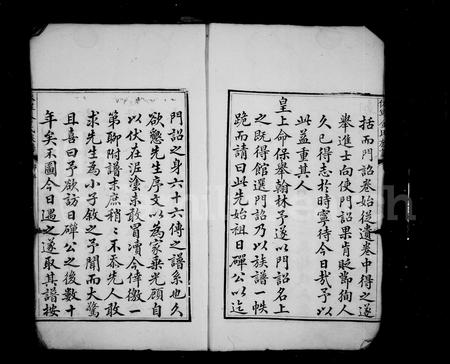 括而門詔卷始從遺卷中得之遂
舉進士向使門詔果肯貶節徇人
久已得志於時寧待今日哉予以
此益重其人
皇上命保舉翰林予遂以門詔名上
之既得館選門詔乃以族譜一帙
跪而請曰此先始祖日磾公以迄
門詔之身六十六傳之譜系也久
欲懇先生序文以為家乗光顧自
以伏在泥塗未敢冒凟今倖徼一
第聊附譜末庶稍稍不忝先人敢
求先生為小子敘之予聞而大驚
且喜曰予欲訪日磾公之後數十
年矣不圖今日遇之遂取其譜按